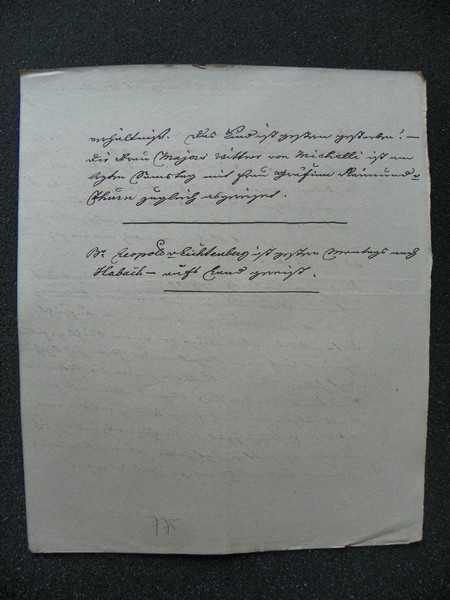 verhältniß. Das Kind ist gestern gestorben! —
die Frau Majors Wittwe von Michelli ist am
lezten Samstag mit Frau Gräfinn Raimund v
Thurn zugleich abgereiset.
Br Leopold v Lichtenberg ist gestern Montags nach
Habach — aufs Land gereist.